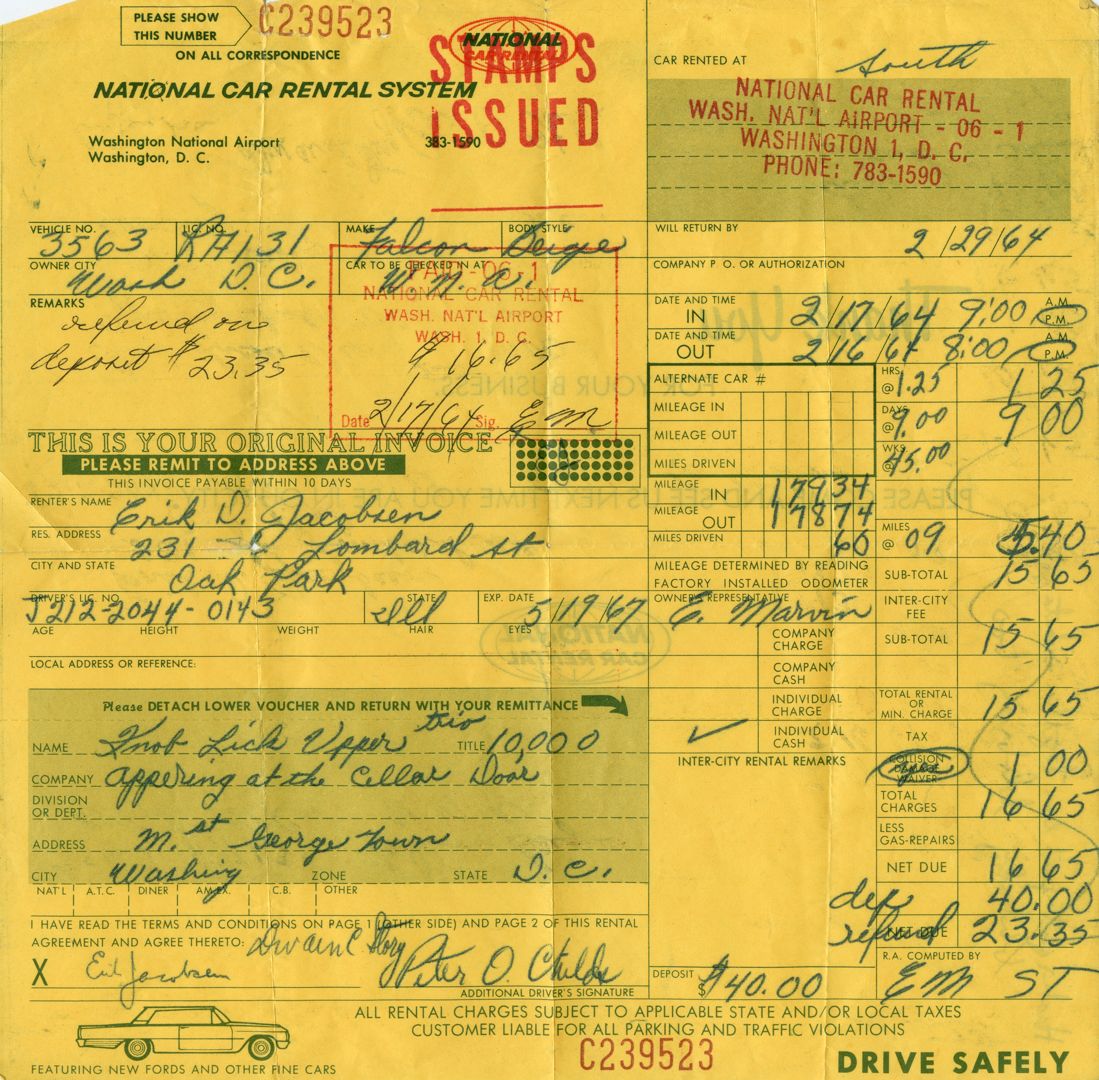 PLEASE SHOW
THIS NUMBER
C239523
ON ALL CORRESPONDENCE
NATIONAL
CAR RENTAL
STAMPS
ISSUED
NATIONAL CAR RENTAL SYSTEM
Washington National Airport
Washington, D. C.
383-1590
CAR RENTED AT South
NATIONAL CAR RENTAL
WASH. NAT'L AIRPORT - 06 - 1
WASHINGTON 1, D. C.
PHONE: 783-1590
VEHICLE NO. 3563 LIC. NO. RA131 MAKE Falcon BODY STYLE Beige
WILL RETURN BY 2/29/64
OWNER CITY Wash D.C. CAR TO BE CHECKED IN AT W.N.A.
COMPANY P O. OR AUTHORIZATION
REMARKS
refund on
deposit $ 23.35
06-1
NATIONAL CAR RENTAL
WASH. NAT'L AIRPORT
WASH. 1, D. C.
$ 16.65
Date 2/17/64 Sig. EM
DATE AND TIME IN 2/17/64 9:00 A.M. P.M.
DATE AND TIME OUT 2/16 64 8:00 A.M. P.M.
ALTERNATE CAR #
MILEAGE IN
MILEAGE OUT
MILES DRIVEN
HRS. @ 1.25 1 25
DAYS @ 9.00 9 00
WKS. @ 45.00
THIS IS YOUR ORIGINAL INVOICE
PLEASE REMIT TO ADDRESS ABOVE
THIS INVOICE PAYABLE WITHIN 10 DAYS
MILEAGE IN 17934
MILEAGE OUT 17874
MILES DRIVEN 60
MILES @ 09 5.40
RENTER'S NAME Erik D. Jacobsen
RES. ADDRESS 231 Lombard st
CITY AND STATE Oak Park
MILEAGE DETERMINED BY READING
FACTORY INSTALLED ODOMETER
SUB-TOTAL 15 65
DRIVER'S LIC. NO. J212-2044-0143 STATE Ill EXP. DATE 5/19/67
OWNER'S REPRESENTATIVE E. Marvin
INTER-CITY
FEE
AGE HEIGHT WEIGHT HAIR EYES
COMPANY
CHARGE
SUB-TOTAL 15 65
LOCAL ADDRESS OR REFERENCE:
COMPANY
CASH
INDIVIDUAL
CHARGE
TOTAL RENTAL
OR
MIN. CHARGE 15 65
INDIVIDUAL
CASH
TAX
Please DETACH LOWER VOUCHER AND RETURN WITH YOUR REMITTANCE
NAME Knob Lick Upper trio TITLE 10,000
COMPANY appering at the Cellar Door
DIVISION
OR DEPT.
ADDRESS M. st George Town
CITY Washing ZONE STATE D.C.
INTER-CITY RENTAL REMARKS
COLLISION
DAMAGE
WAIVER 1 00
TOTAL
CHARGES 16 65
LESS
GAS-REPAIRS
NET DUE 16 65
dep 40.00
refund NET DUE 23.35
NAT'L A.T.C. DINER AM.EX. C.B. OTHER
I HAVE READ THE TERMS AND CONDITIONS ON PAGE 1 (OTHER SIDE) AND PAGE 2 OF THIS RENTAL
AGREEMENT AND AGREE THERETO: Dwain Story
X Erik Jacobsen
Peter O. Childs
ADDITIONAL DRIVER'S SIGNATURE
DEPOSIT $ $40.00
R.A. COMPUTED BY
EM ST
ALL RENTAL CHARGES SUBJECT TO APPLICABLE STATE AND/OR LOCAL TAXES
CUSTOMER LIABLE FOR ALL PARKING AND TRAFFIC VIOLATIONS
C239523
FEATURING NEW FORDS AND OTHER FINE CARS
DRIVE SAFELY